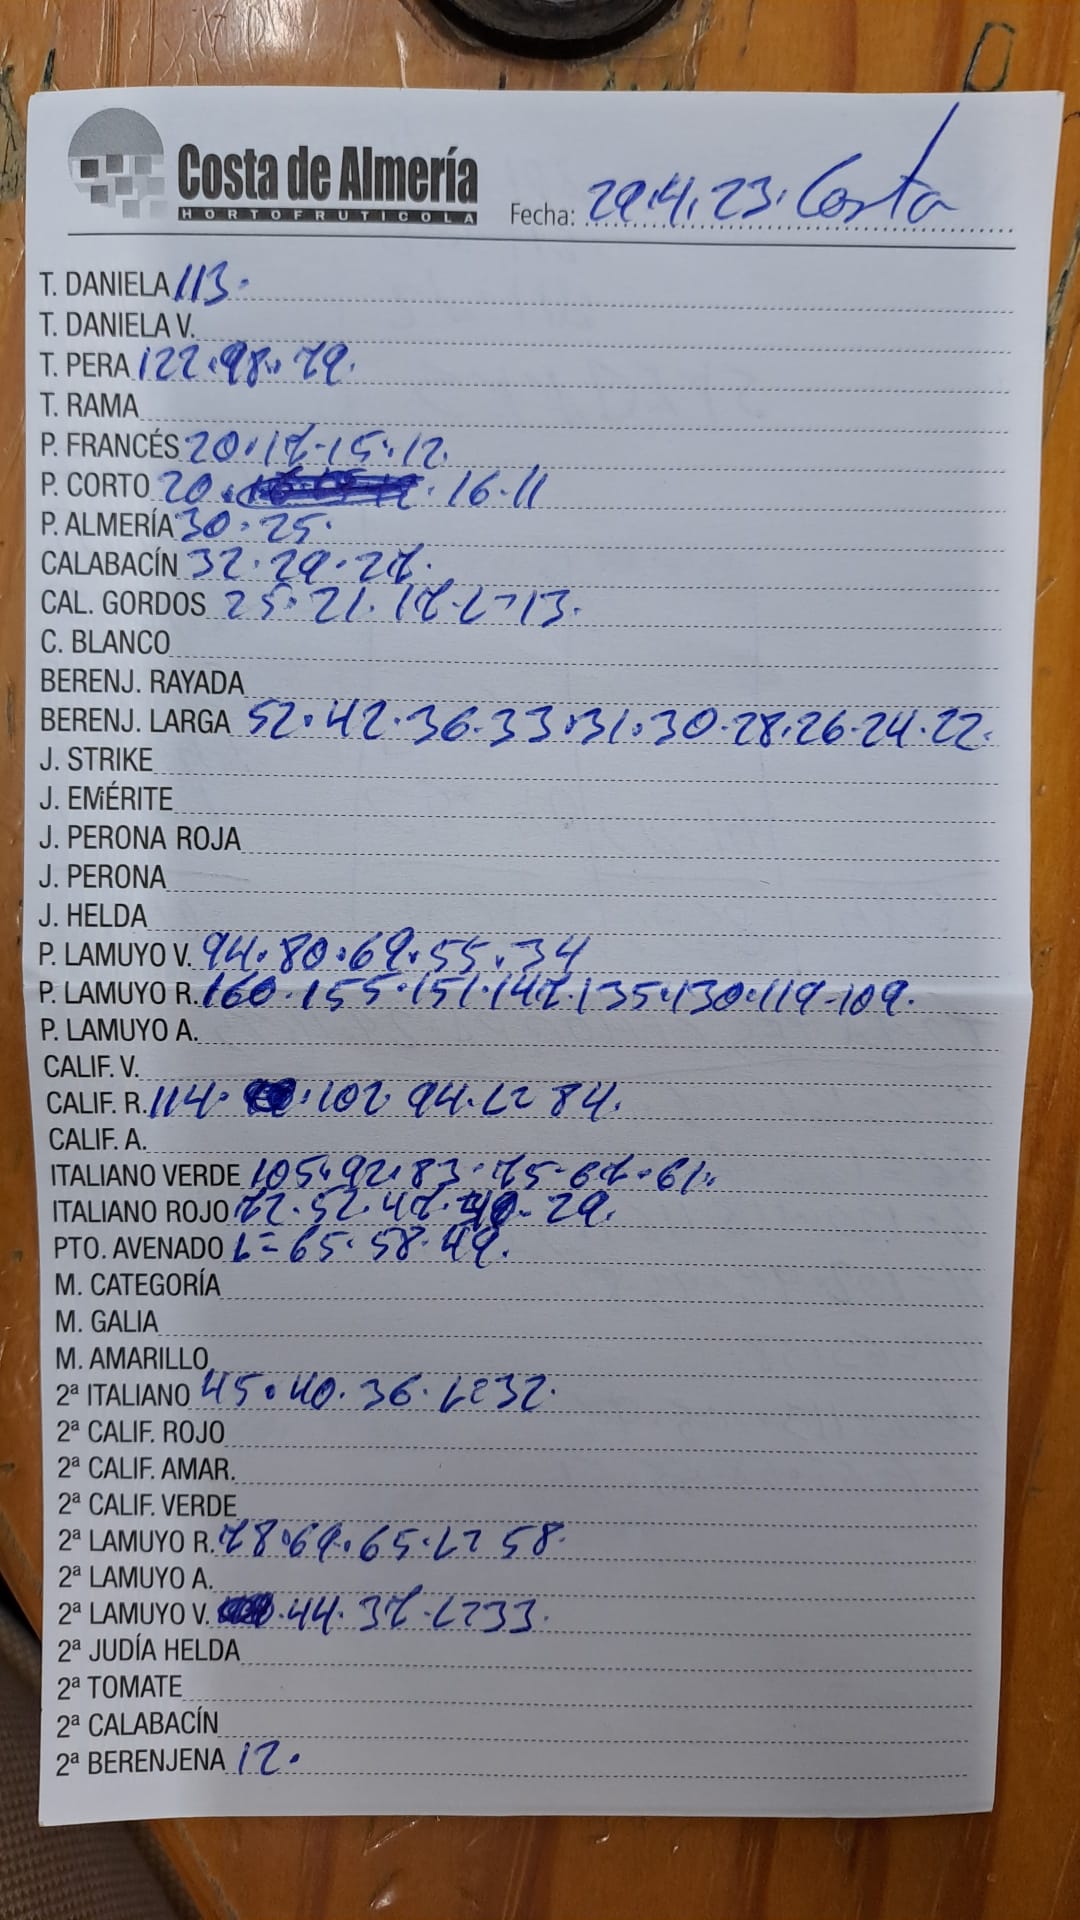 Costa de Almería
HORTOFRUTICOLA
Fecha: 29.4.23. Costa
T. DANIELA 113.
T. DANIELA V.
T. PERA 122.98.79.
T. RAMA
P. FRANCÉS 20.17-15.12.
P. CORTO 20. . 16.11
P. ALMERÍA 30.25.
CALABACÍN 32.29.27.
CAL. GORDOS 25.21.17-L=13.
C. BLANCO
BERENJ. RAYADA
BERENJ. LARGA 52.42.36.33.31.30.28.26.24.22.
J. STRIKE
J. EMÉRITE
J. PERONA ROJA
J. PERONA
J. HELDA
P. LAMUYO V. 94.80.69.55.34
P. LAMUYO R. 160.155.151.147.135.130.119-109.
P. LAMUYO A.
CALIF. V.
CALIF. R. 114. . 102 94.L= 84.
CALIF. A.
ITALIANO VERDE 105.92.83.75-67.61.
ITALIANO ROJO 72.52.47.40-29.
PTO. AVENADO L=65.58.49.
M. CATEGORÍA
M. GALIA
M. AMARILLO
2ª ITALIANO 45.40.36.L=32.
2ª CALIF. ROJO
2ª CALIF. AMAR.
2ª CALIF. VERDE
2ª LAMUYO R. 78.69.65.L= 58.
2ª LAMUYO A.
2ª LAMUYO V. .44.37.L=33.
2ª JUDÍA HELDA
2ª TOMATE
2ª CALABACÍN
2ª BERENJENA 12.